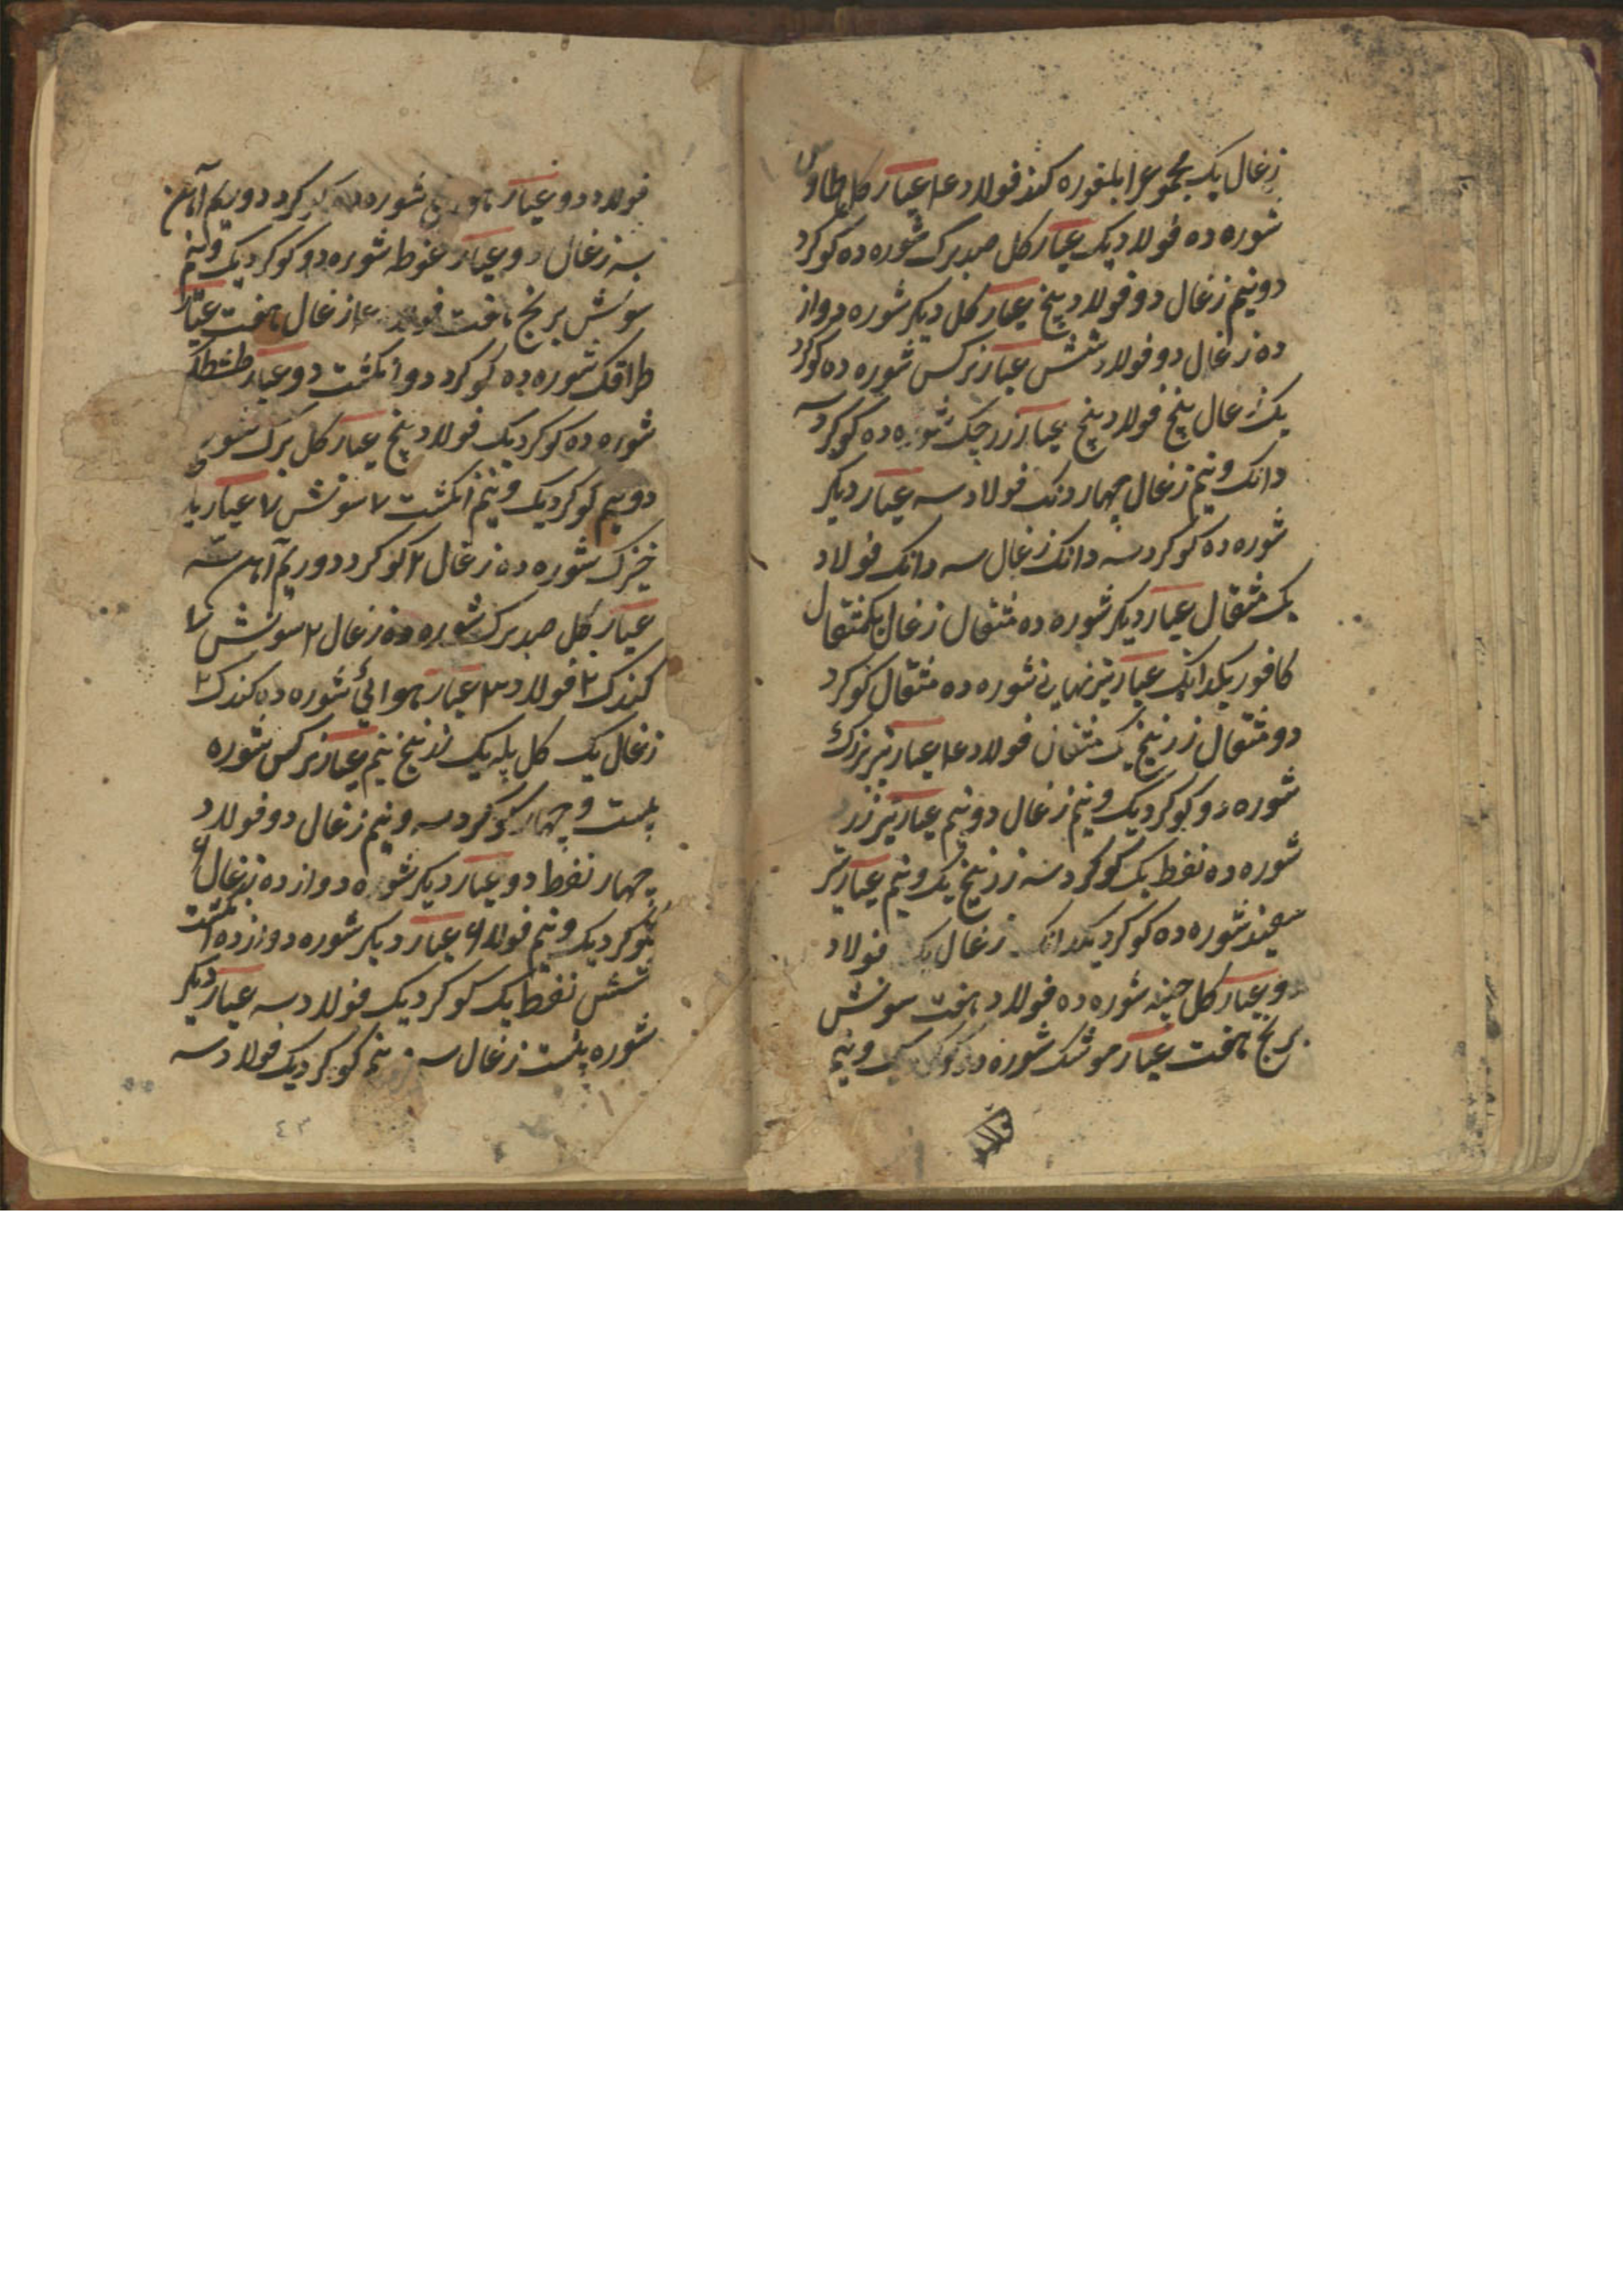 زغال یک مجموعرا بلغوره کنند فولاد ۱۴ عیار کل طاوس
شوره ده فولاد یک عیار کل صدبرک شوره ده کوکرد
دونیم زغال دو فولاد پنج عیار کل دیکر شوره دواز
ده زغال دو فولاد شش عیار نرکس شوره ده کوکرد
یک زغال پنج فولاد پنج عیار زرچک شوره ده کوکرد سه
دانک و نیم زغال چهار دنک فولاد سه عیار دیکر
شوره ده کوکرد سه دانک زغال سه دانک فولاد
یک مثقال عیار دیکر شوره ده مثقال زغال یکمثقال
کافور یکدانک عیار تیز نهانی شوره ده مثقال کوکرد
دو مثقال زرنیخ یک مثقال فولاد ۱۴ عیار تیر بزرک
شوره دو کوکرد یک و نیم زغال دو نیم عیار تیر زرد
شوره ده نفط یک کوکرد سه زرنیخ یک و نیم عیار تیر
سفید شوره ده کوکرد یکدانک زغال یک فولاد
دو عیار کل شوره ده فولاد هفت سونش
برنج هفت عیار موشک شوره ده کوکرد یک و نیم
فولاد دو عیار شوره ده کوکرد دو ریم آهن
سه زغال دو عیار غوطه شوره ده کوکرد یک و نیم
سونش برنج هفت فولاد زغال هفت عیار
طراقک شوره ده کوکرد دو انکشت دو عیار
شوره ده کوکرد یک فولاد پنج عیار کل برک شوره
دونیم کوکرد یک و نیم انکشت ۷ سونش ۷ عیار
خیزک شوره ده زغال ۲ کوکرد دو ریم آهن سه
عیار کل صدبرک شوره ده زغال ۲ سونش ۷
کندک ۲ فولاد ۳ عیار هوائی شوره ده کندک ۲
زغال یک کل پله یک زرنیخ نیم عیار نرکس شوره
بیست و چهار کوکرد سه و نیم زغال دو فولاد
چهار نفط دو عیار دیکر شوره دوازده زغال ۶
کوکرد یک و نیم فولاد ۶ عیار دیکر شوره دوازده انکشت
شش نفط یک کوکرد یک فولاد سه عیار دیکر
شوره بیست زغال سه نیم کوکرد یک فولاد سه
۴۳